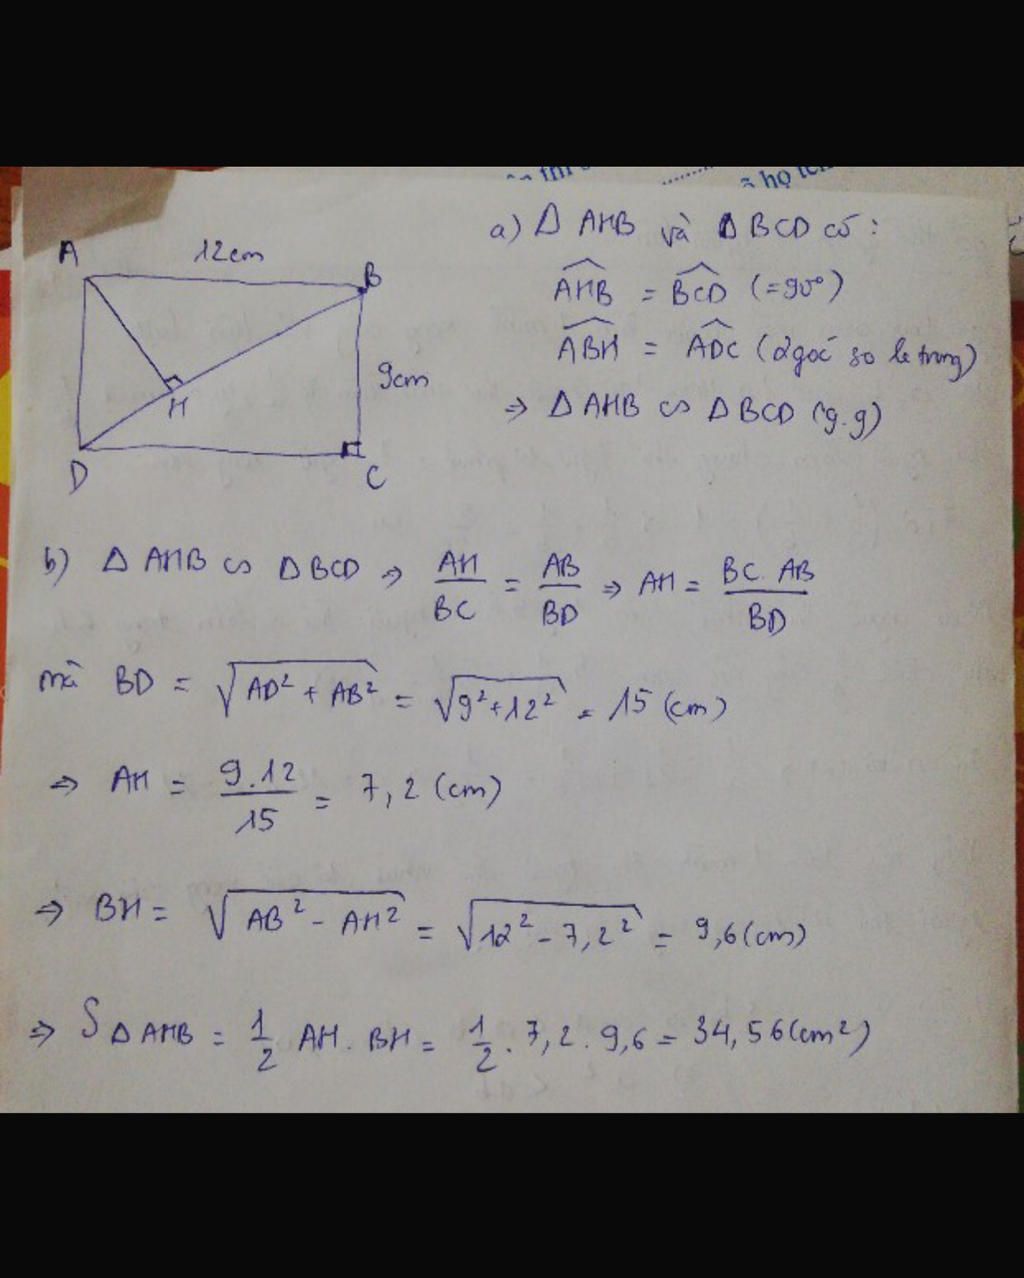 thi
họ tên
a) Δ AHB và Δ BCD có:
A 12cm B
$\widehat{AHB} = \widehat{BCD}$ (=90°)
$\widehat{ABH} = \widehat{ADC}$ (2 góc so le trong)
9cm
H
⇒ Δ AHB ∽ Δ BCD (g.g)
D C
b) Δ AHB ∽ Δ BCD ⇒ $\frac{AH}{BC} = \frac{AB}{BD}$ ⇒ AH = $\frac{BC.AB}{BD}$
mà BD = $\sqrt{AD^2 + AB^2} = \sqrt{9^2+12^2}$ = 15 (cm)
⇒ AH = $\frac{9.12}{15}$ = 7,2 (cm)
⇒ BH = $\sqrt{AB^2 - AH^2} = \sqrt{12^2 - 7,2^2}$ = 9,6 (cm)
⇒ S Δ AHB = $\frac{1}{2}$ AH . BH = $\frac{1}{2}$ . 7,2 . 9,6 = 34,56 (cm²)